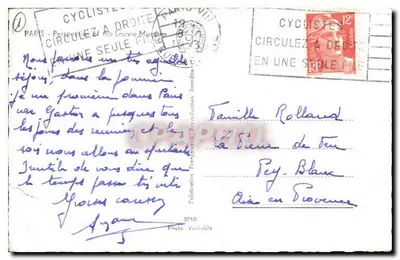 CYCLISTES
CIRCULEZ A DROITE
EN UNE SEULE FILE
CYCLISTES
CIRCULEZ A DROITE
EN UNE SEULE FILE
PARIS
12F
RF
Nous passons un très agréable
séjour, dans la journée
je me promène dans Paris
car Gaston a presque tous
les jours des
soir nous allons au spectacle
Inutile de vous dire que
le temps passe très vite
Grosses caresses
Famille Rolland
La Pierre de Feu
Pey-Blanc
Aix en Provence
Photo Véritable